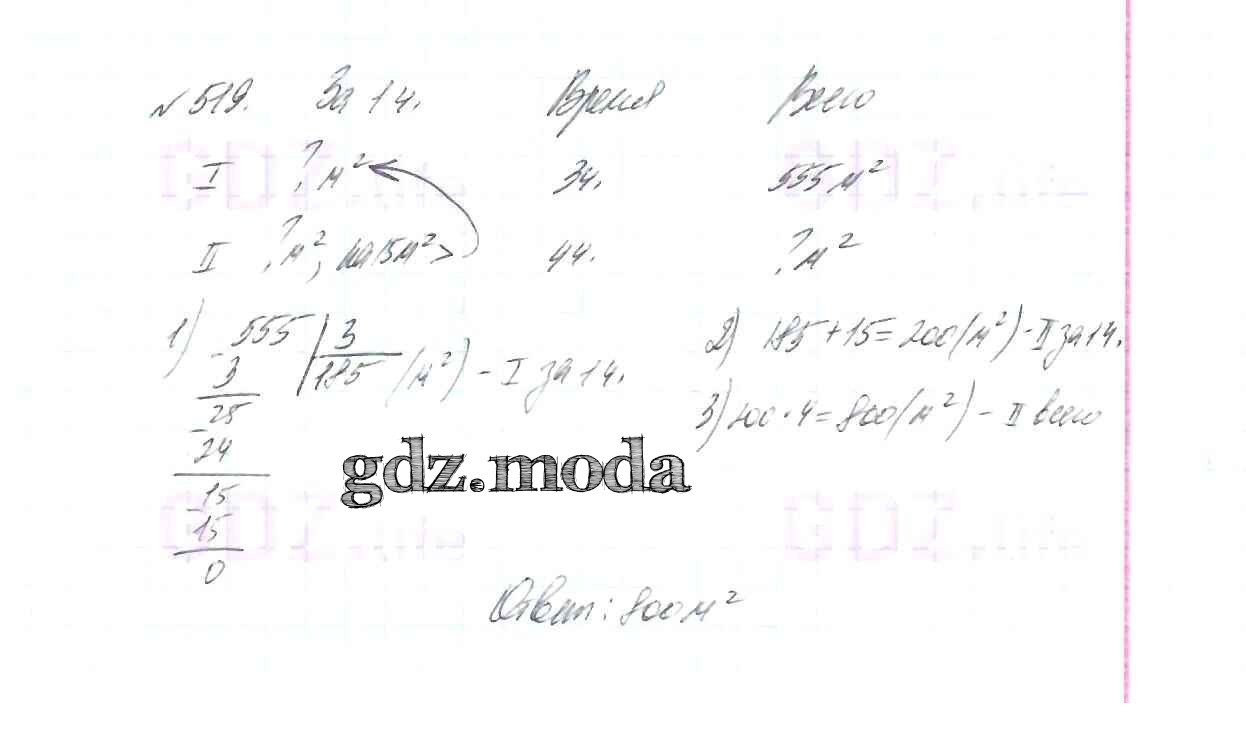 №519. За 1ч. Время Всего
I ? м² 3ч. 555 м²
II ? м², на 15 м² > 4ч. ? м²
1) 555 | 3
3 185 (м²) - I за 1ч.
25
24
15
15
0
2) 185 + 15 = 200 (м²) - II за 1ч.
3) 200 · 4 = 800 (м²) - II всего
gdz.moda
Ответ: 800 м²